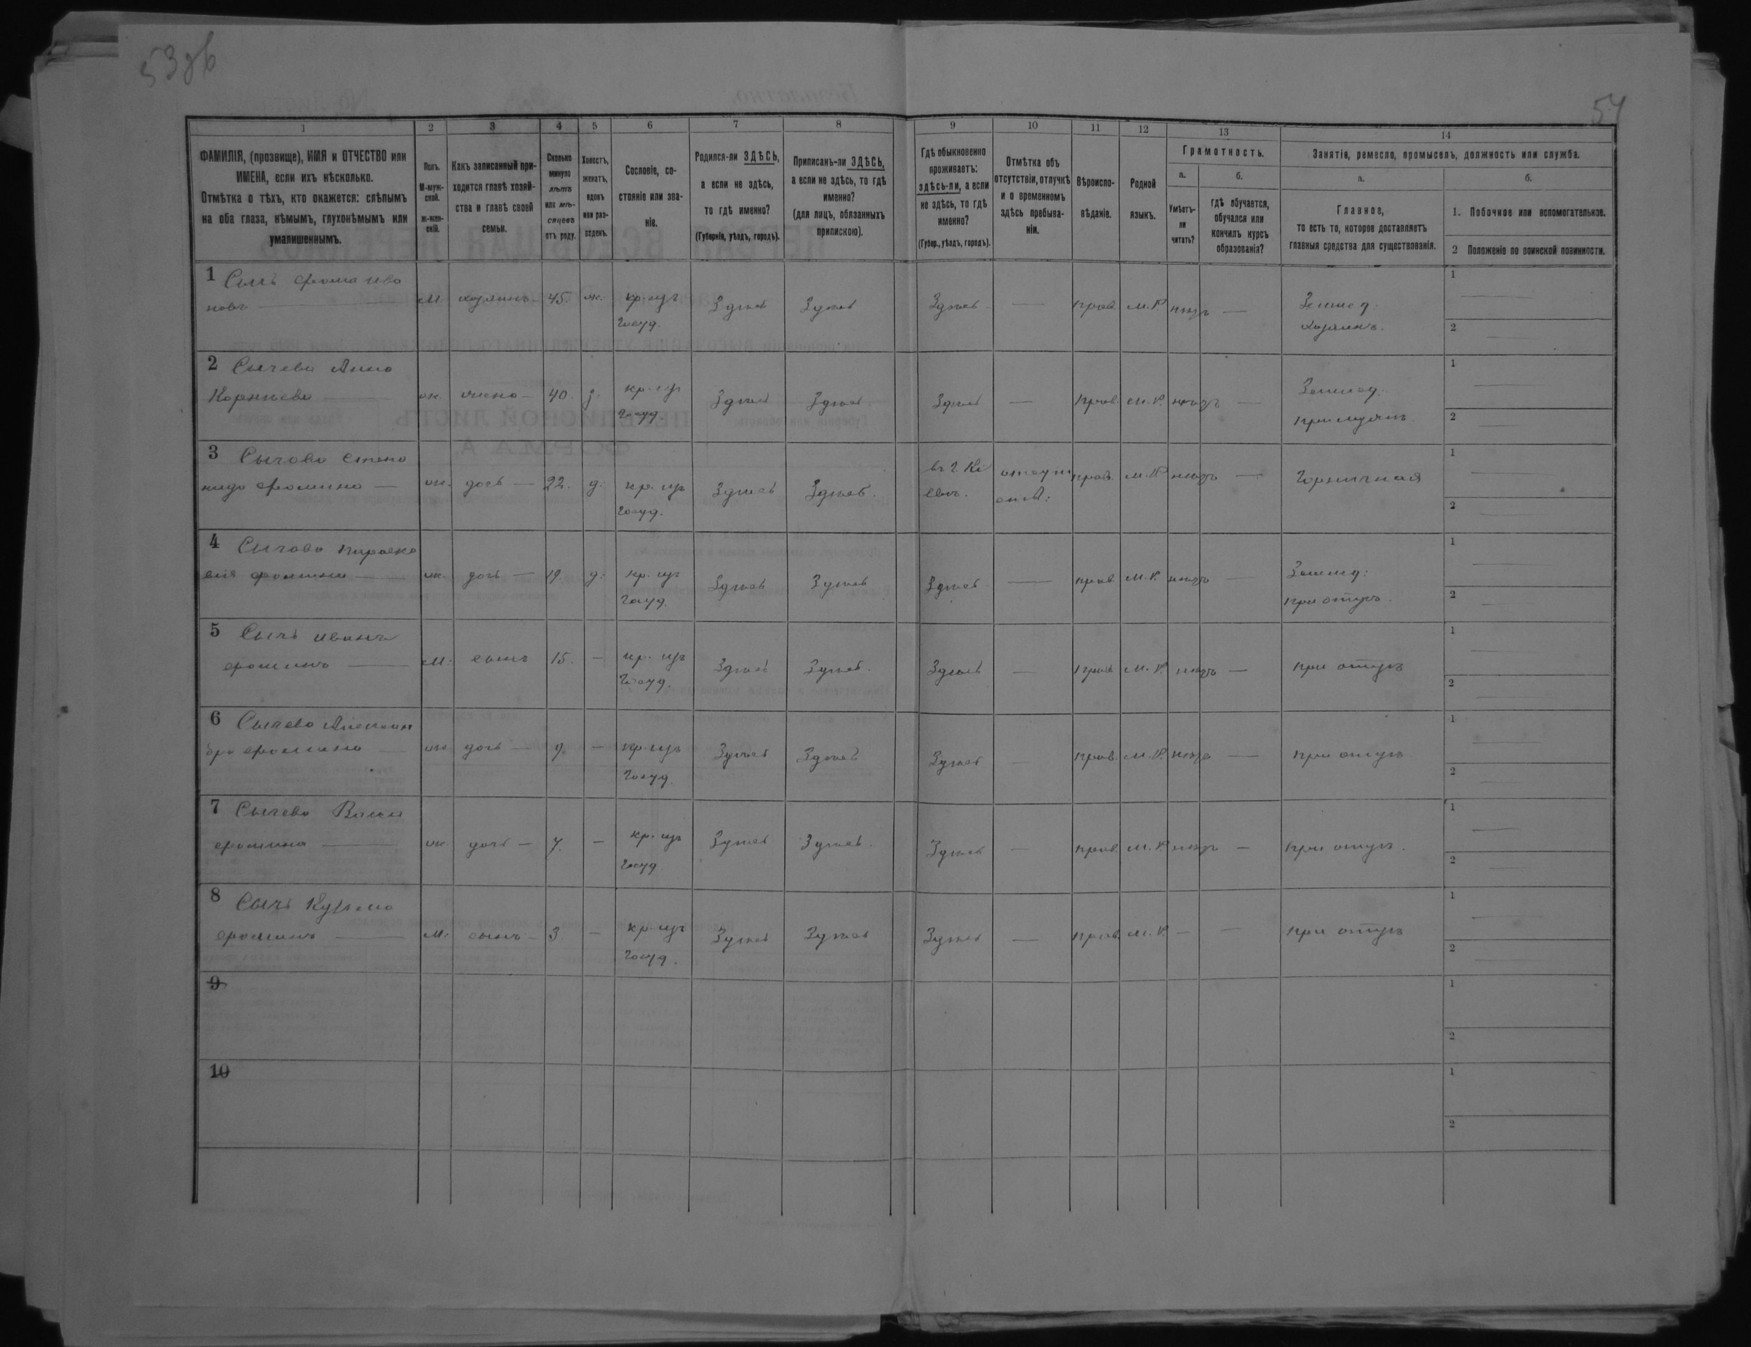 53об
54
1 2 3 4 5 6 7 8 9 10 11 12 13 14
ФАМИЛІЯ, (прозвище), ИМЯ и ОТЧЕСТВО или
ИМЕНА, если ихъ нѣсколько.
Отмѣтка о тѣхъ, кто окажется: слѣпымъ
на оба глаза, нѣмымъ, глухонѣмымъ или
умалишеннымъ.
Полъ.
М-муж-
ской.
ж-жен-
скій.
Какъ записанный при-
ходится главѣ хозяй-
ства и главѣ своей
семьи.
Сколько
минуло
лѣтъ
или мѣ-
сяцевъ
отъ роду.
Холостъ,
женатъ,
вдовъ
или раз-
веденъ.
Сословіе, со-
стояніе или зва-
ніе.
Родился-ли ЗДѢСЬ,
а если не здѣсь,
то гдѣ именно?
(Губернія, уѣздъ, городъ).
Приписанъ-ли ЗДѢСЬ,
а если не здѣсь, то гдѣ
именно?
(для лицъ, обязанныхъ
припискою).
Гдѣ обыкновенно
проживаетъ:
здѣсь-ли, а если
не здѣсь, то гдѣ
именно?
(Губер., уѣздъ, городъ).
Отмѣтка объ
отсутствіи, отлучкѣ
и о временномъ
здѣсь пребыва-
ніи.
Вѣроиспо-
вѣданіе.
Родной
языкъ.
Грамотность.
а.
Умѣетъ-
ли
читать?
б.
гдѣ обучается,
обучался или
кончилъ курсъ
образованія?
Занятіе, ремесло, промыселъ, должность или служба.
а.
Главное,
то есть то, которое доставляетъ
главныя средства для существованія.
б.
1. Побочное или вспомогательное.
2 Положеніе по воинской повинности.
1 Сычъ
м. хозяинъ 45 ж. кр. изъ Здѣсь Здѣсь Здѣсь — прав. м.р. нѣтъ — Землед.
госуд. хозяинъ.
2 Сычева Анна
Корнѣева — ж. жена — 40 з. кр. изъ Здѣсь Здѣсь Здѣсь — прав. м.р. нѣтъ — Землед.
госуд. при мужѣ.
3 Сычова Степа
нида — ж. дочь — 22. д. кр. изъ Здѣсь Здѣсь въ г. Кі прав. м.р. нѣтъ — Горничная
госуд. евѣ.
4 Сычова Параско
вія — ж. дочь — 19. д. кр. изъ Здѣсь Здѣсь Здѣсь — прав. м.р. нѣтъ — Землед.
госуд. при отцѣ
5 Сычъ Иванъ
— м. сынъ 15. — кр. изъ Здѣсь Здѣсь Здѣсь — прав. м.р. нѣтъ — при отцѣ
госуд.
6 Сычева Алексан
дра — ж. дочь — 9. — кр. изъ Здѣсь Здѣсь Здѣсь — прав. м.р. нѣтъ — при отцѣ
госуд.
7 Сычева
— ж. дочь — 7 — кр. изъ Здѣсь Здѣсь Здѣсь — прав. м.р. нѣтъ — при отцѣ.
госуд.
8 Сычъ Кузьма
— м. сынъ — 3 — кр. изъ Здѣсь Здѣсь Здѣсь — прав. м.р. — — при отцѣ
госуд.
9
10